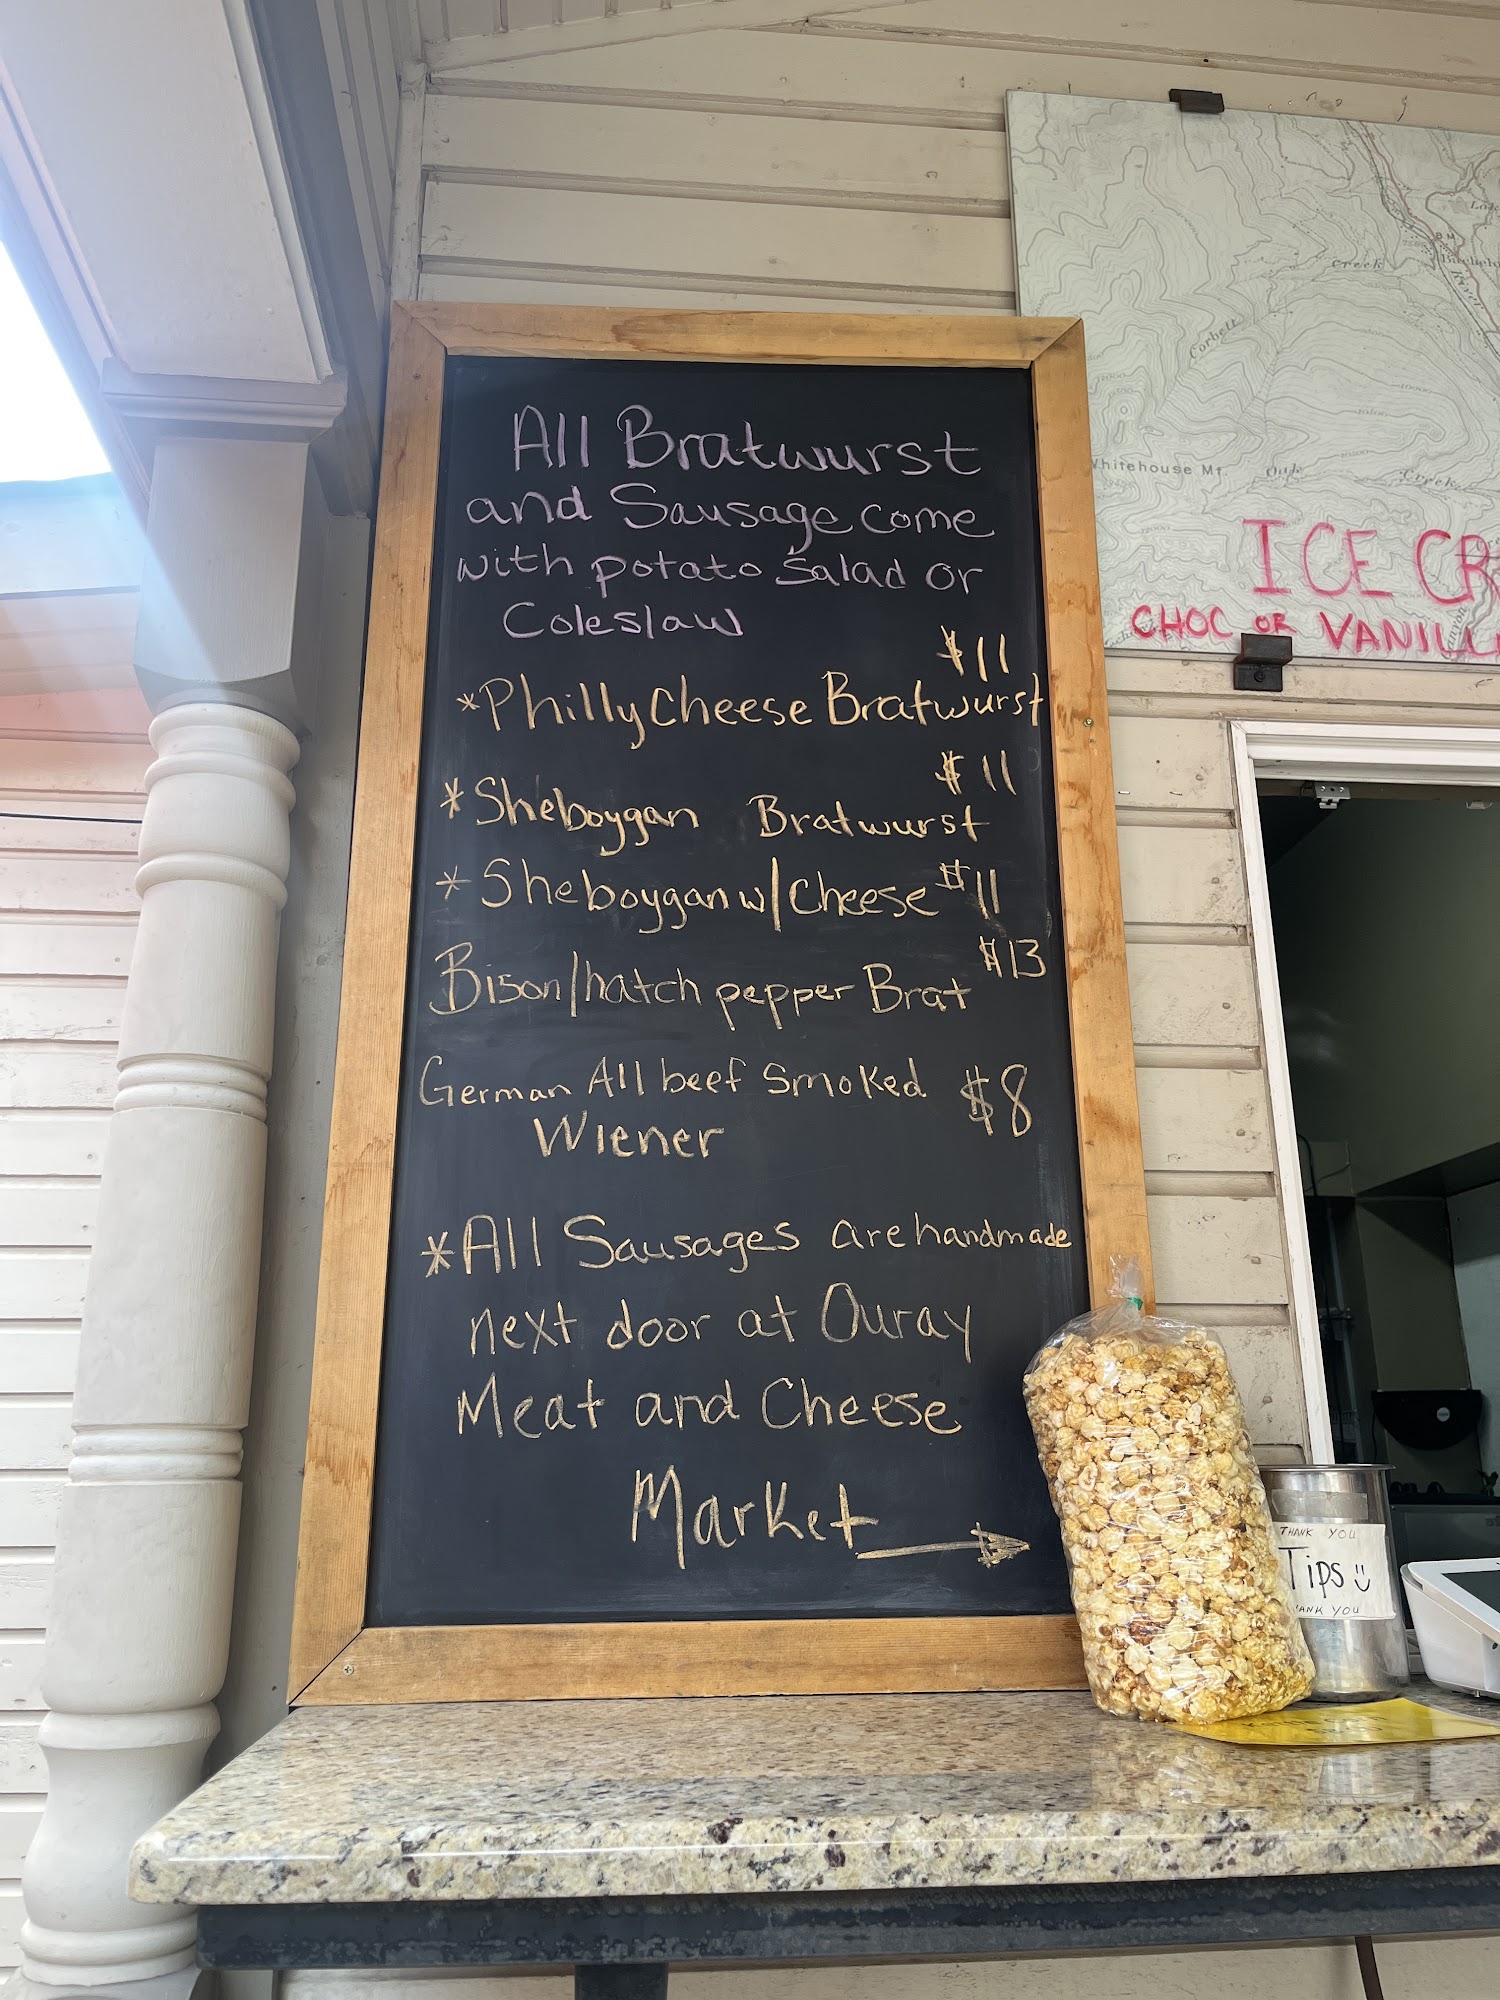 All Bratwurst
and Sausage come
with potato Salad or
Coleslaw
$11
*Philly Cheese Bratwurst
$11
*Sheboygan Bratwurst
*Sheboygan w/Cheese $11
Bison/hatch pepper Brat $13
German All beef Smoked $8
Wiener
*All Sausages are handmade
next door at Ouray
Meat and Cheese
Market
Creek
Corbett
River
Whitehouse Mt.
Oak Creek
ICE CR
CHOC OR VANILL
THANK YOU
Tips
ANK YOU